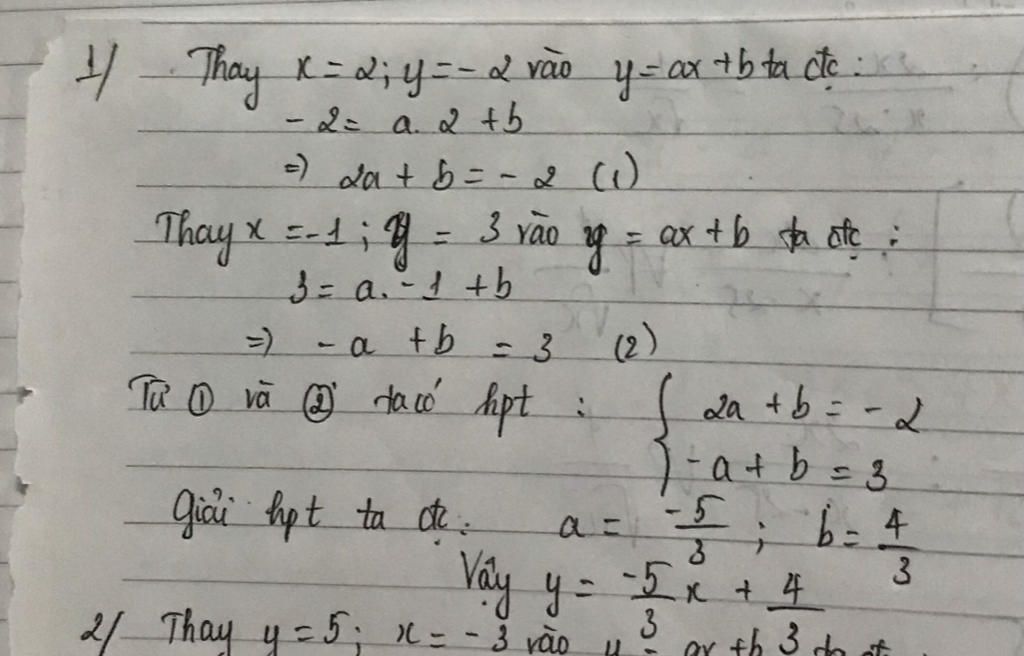 1/ Thay x = 2; y = - 2 vào y = ax + b ta đc :
- 2 = a. 2 + b
=) 2a + b = - 2 (1)
Thay x = -1 ; y = 3 vào y = ax + b ta đc :
3 = a. - 1 + b
=) - a + b = 3 (2)
Từ ① và ② ta có hpt : { 2a + b = - 2
- a + b = 3
Giải hpt ta đc : a = -5/3 ; b = 4/3
Vậy y = -5/3 x + 4/3
2/ Thay y = 5; x = - 3 vào y = ax + b ta đc :